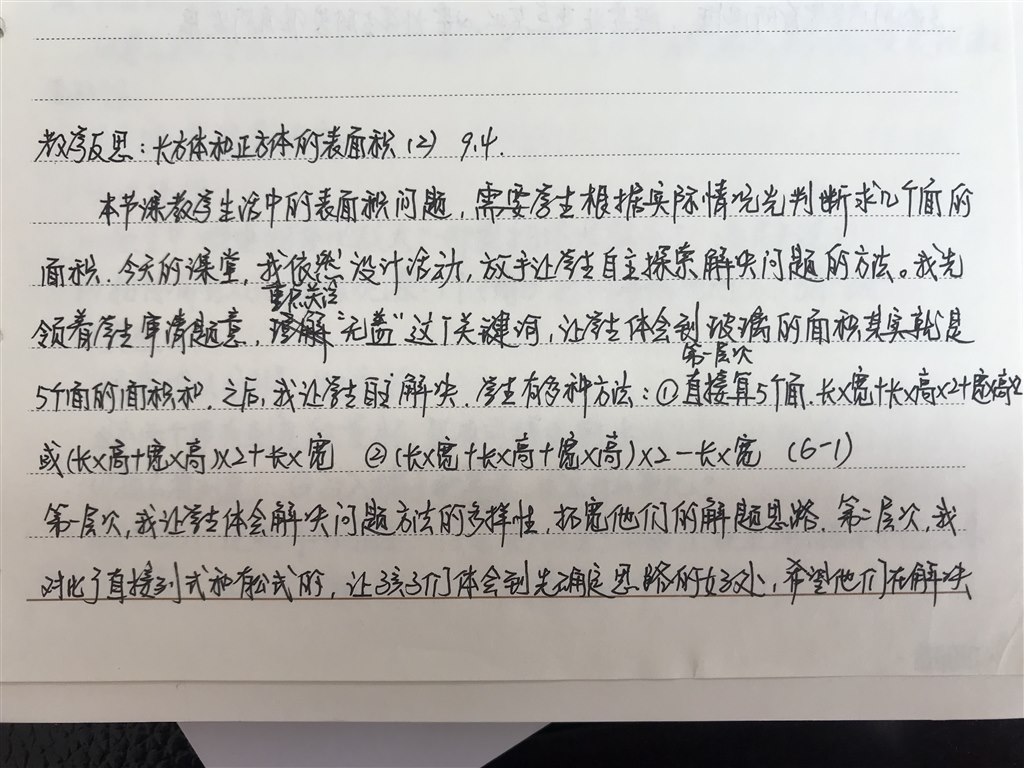 教学反思：长方体和正方体的表面积（2） 9.4.
本节课教学生活中的表面积问题，需要学生根据实际情况先判断求几个面的
面积．今天的课堂，我依然设计活动，放手让学生自主探索解决问题的方法。我先
重点关注
领着学生审清题意，理解“无盖”这个关键词，让学生体会到玻璃的面积其实就是
第一层次
5个面的面积和．之后，我让学生自主解决．学生有多种方法：①直接算5个面．长×宽+长×高×2+宽×高×2
或（长×高+宽×高）×2+长×宽 ②（长×宽+长×高+宽×高）×2－长×宽 （6－1）
第一层次，我让学生体会解决问题方法的多样性，拓宽他们的解题思路．第二层次，我
对比了直接列式和有公式的，让孩子们体会到先确定思路的好处，希望他们在解决